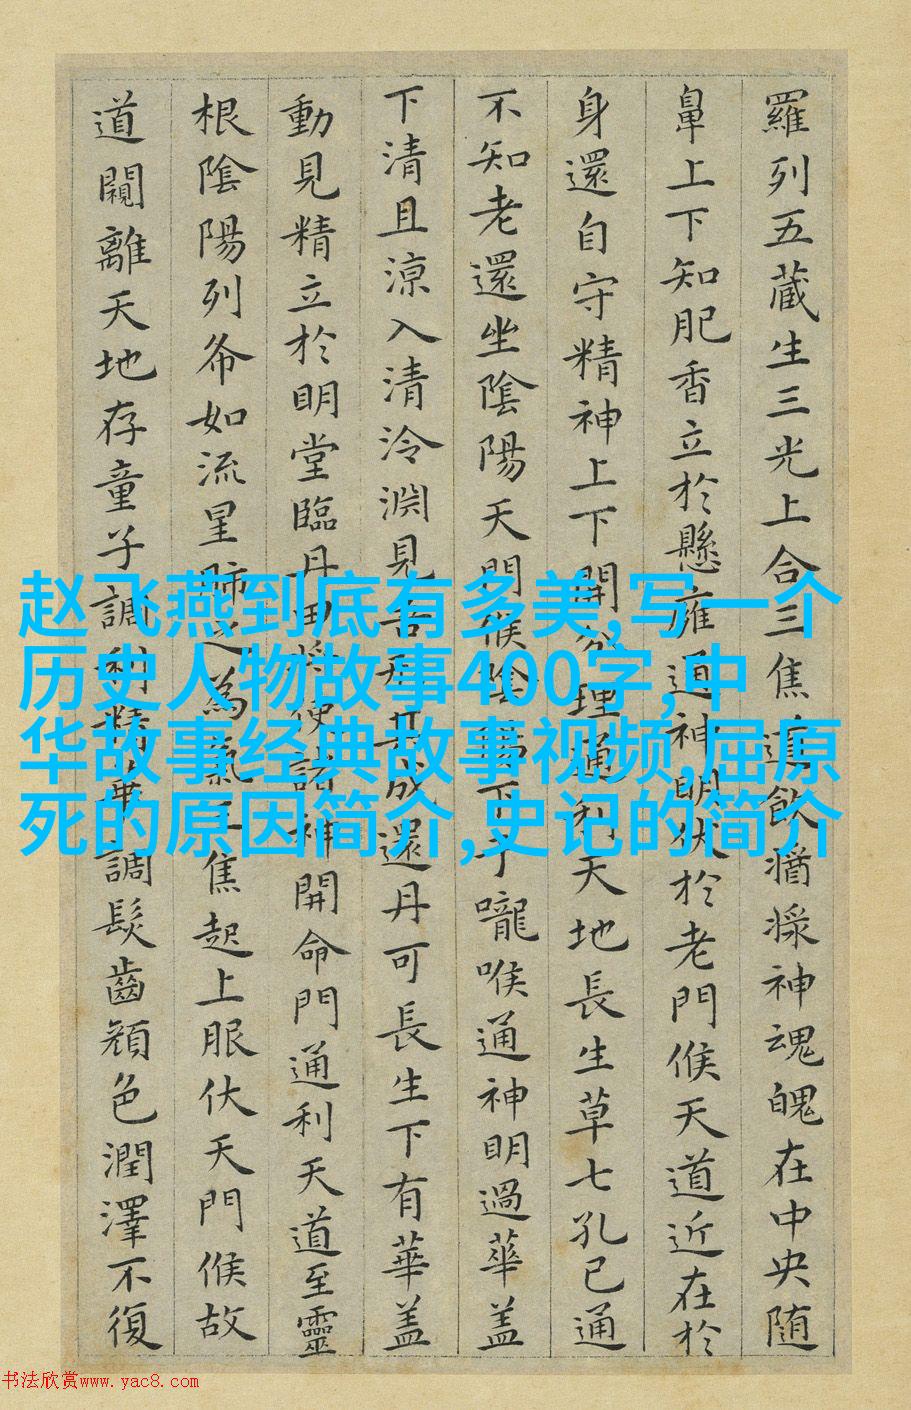 羅列五蔵生三光上合三焦道飲神魂魄在中央随
鼻上下知肥香立於懸雍通神明伏於老門候天道近在於
身還自守精神上下開分理通利天地長生草七孔已通
不知老還坐陰陽天門候陰陽下于嚨喉通神明過華盖
下清且涼入清泠渊見吾形其成還丹可長生下有華盖
動見精立於明堂臨丹田将使諸神開命門通利天道至靈
根陰陽列布如流星肺之為氣三焦起上服伏天門候故
道闚離天地存童子調利精華調髮齒顔色潤澤不復
赵飞燕到底有多美,写一个
历史人物故事400字,中
华故事经典故事视频,屈原
死的原因简介,史记的简介
书法欣赏www.yac8.com